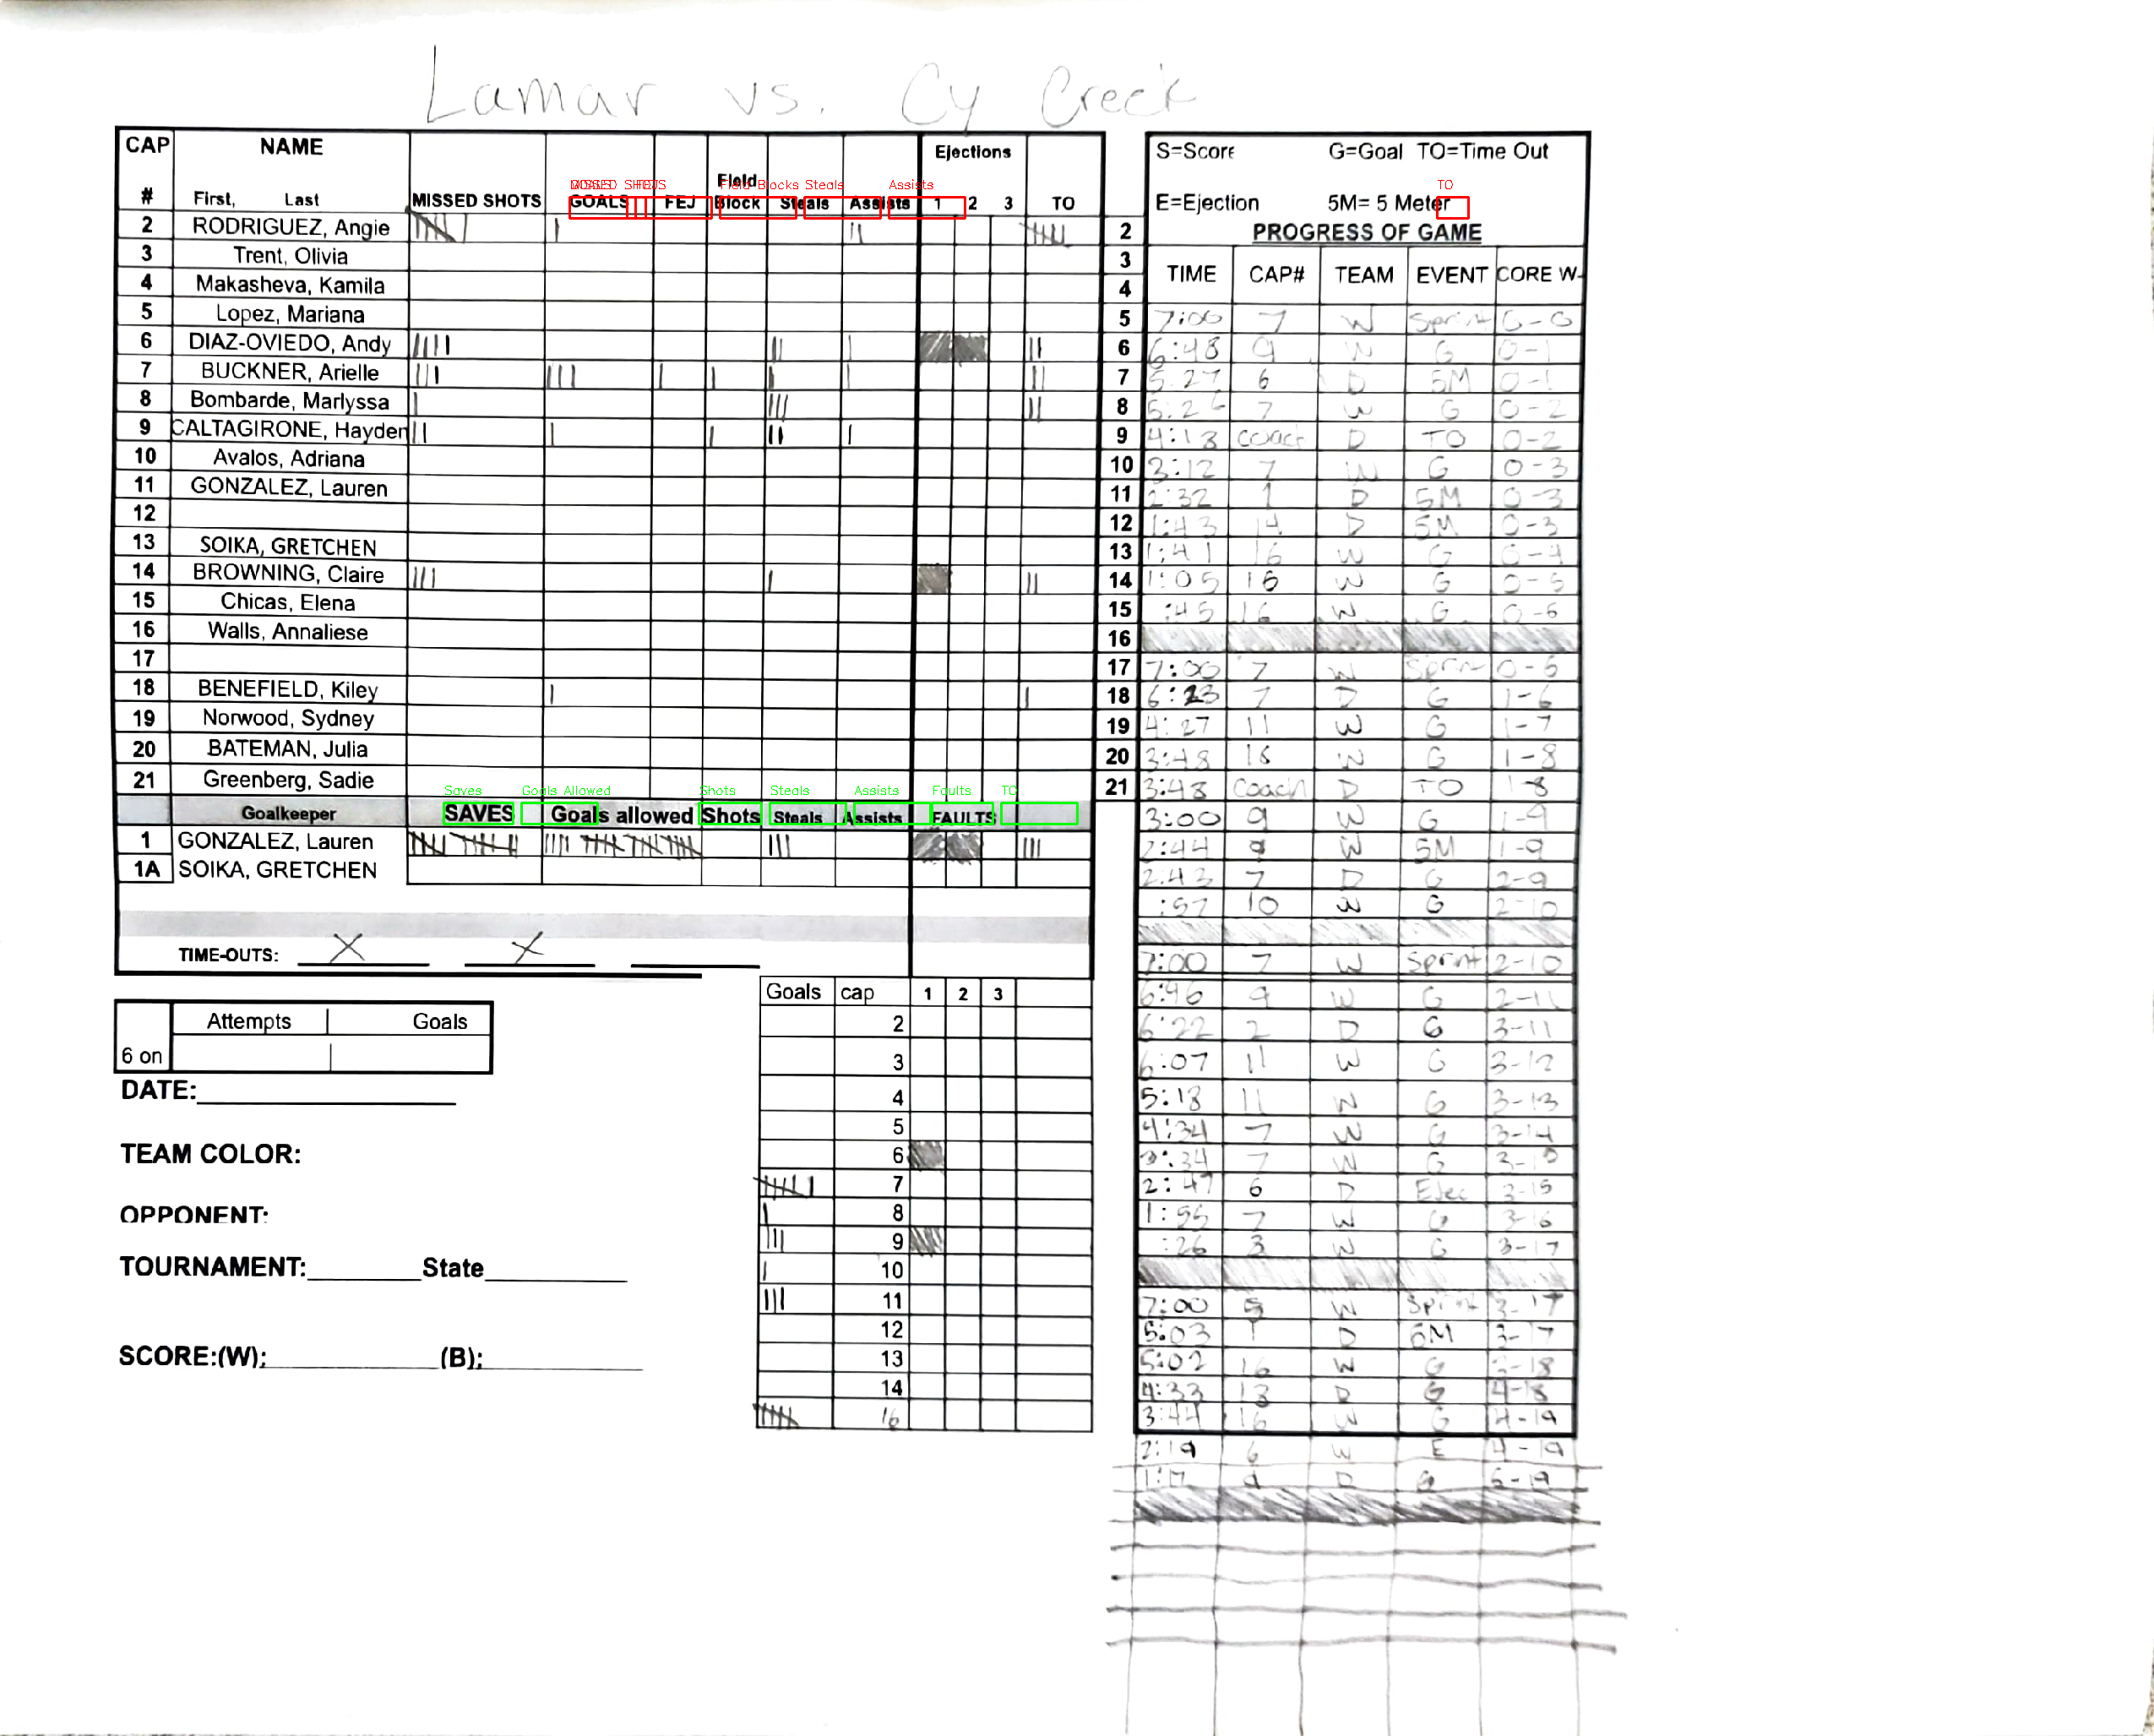 Lamar vs. Cy Creek
CAP # NAME First, Last MISSED SHOTS GOALS FEJ Field Block Steals Assists Ejections 1 2 3 TO
MISSED SHOTS Field Blocks Steals Assists TO
2 RODRIGUEZ, Angie 2
3 Trent, Olivia 3
4 Makasheva, Kamila 4
5 Lopez, Mariana 5
6 DIAZ-OVIEDO, Andy 6
7 BUCKNER, Arielle 7
8 Bombarde, Marlyssa 8
9 CALTAGIRONE, Hayden 9
10 Avalos, Adriana 10
11 GONZALEZ, Lauren 11
12 12
13 SOIKA, GRETCHEN 13
14 BROWNING, Claire 14
15 Chicas, Elena 15
16 Walls, Annaliese 16
17 17
18 BENEFIELD, Kiley 18
19 Norwood, Sydney 19
20 BATEMAN, Julia 20
21 Greenberg, Sadie 21
Saves Goals Allowed Shots Steals Assists Faults TO
Goalkeeper SAVES Goals allowed Shots Steals Assists FAULTS
1 GONZALEZ, Lauren
1A SOIKA, GRETCHEN
TIME-OUTS: X X
Attempts Goals
6 on
DATE:
TEAM COLOR:
OPPONENT:
TOURNAMENT: State
SCORE:(W): (B):
Goals cap 1 2 3
2
3
4
5
6
7
8
9
10
11
12
13
14
16
S=Score G=Goal TO=Time Out
E=Ejection 5M= 5 Meter
PROGRESS OF GAME
TIME CAP# TEAM EVENT CORE W-
7:00 7 W Sprint 0-0
6:48 9 W G 0-1
5:27 6 D 5M 0-1
5:26 7 W G 0-2
4:13 coach D TO 0-2
3:12 7 W G 0-3
2:32 1 D 5M 0-3
1:43 14 D 5M 0-3
1:41 16 W G 0-4
1:05 16 W G 0-5
:45 16 W G 0-6
7:00 7 W Sprint 0-6
6:23 7 D G 1-6
4:27 11 W G 1-7
3:48 W G 1-8
3:48 Coach D TO 1-8
3:00 9 W G 1-9
2:44 9 W 5M 1-9
2:43 7 D G 2-9
:57 10 W G 2-10
7:00 7 W Sprint 2-10
6:46 9 W G 2-11
6:22 2 D G 3-11
6:07 11 W G 3-12
5:18 11 W G 3-13
4:34 7 W G 3-14
3:34 7 W G 3-15
2:47 6 D Ejec 3-15
1:55 7 W G 3-16
:26 3 W G 3-17
7:00 W Sprint 3-17
5:03 1 D 5M 3-17
5:02 16 W G 3-18
4:33 13 D G 4-18
3:44 16 W G 4-19
2:19 6 W E 4-19
9 D G 5-19